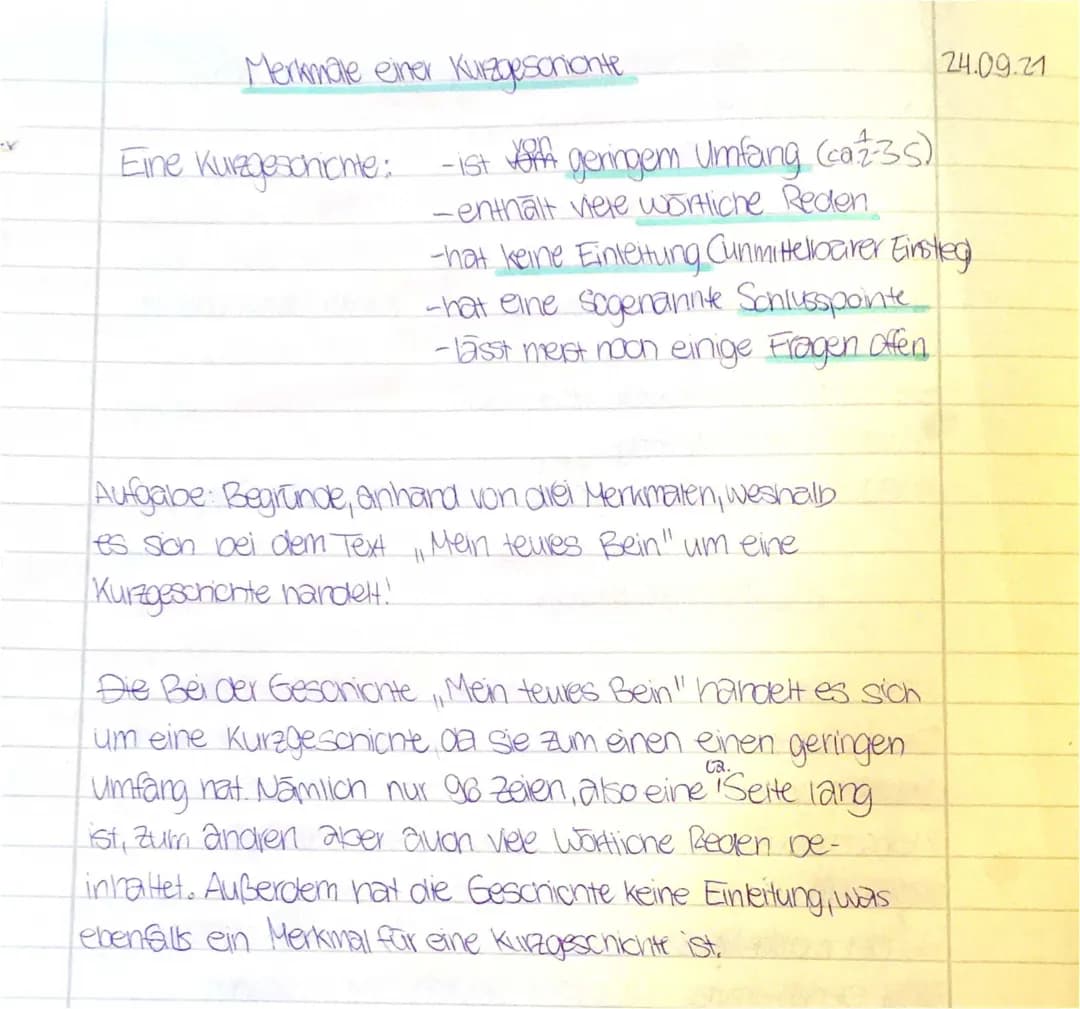 Merkmale einer Kurzgeschichte
24.09.21
Eine Kurzgeschichte: - ist von geringem Umfang (ca ½-3 S)
- enthält viele wörtliche Reden
- hat keine Einleitung (unmittelbarer Einstieg)
- hat eine sogenannte Schlusspointe
- lässt meist noch einige Fragen offen
Aufgabe: Begründe, anhand von drei Merkmalen, weshalb
es sich bei dem Text „Mein teures Bein" um eine
Kurzgeschichte handelt!
Die Bei der Geschichte „Mein teures Bein" handelt es sich
um eine Kurzgeschichte, da sie zum einen einen geringen
Umfang hat. Nämlich nur 98 Zeilen, also eine ca. 1 Seite lang
ist, zum andren aber auch viele Wörtliche Reden be-
inhaltet. Außerdem hat die Geschichte keine Einleitung, was
ebenfalls ein Merkmal für eine Kurzgeschichte ist.